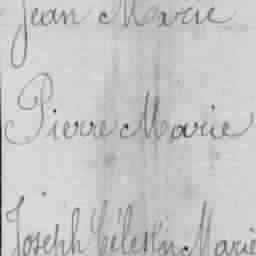 Jean Marie
Pierre Marie
Joseph Célestin Marie